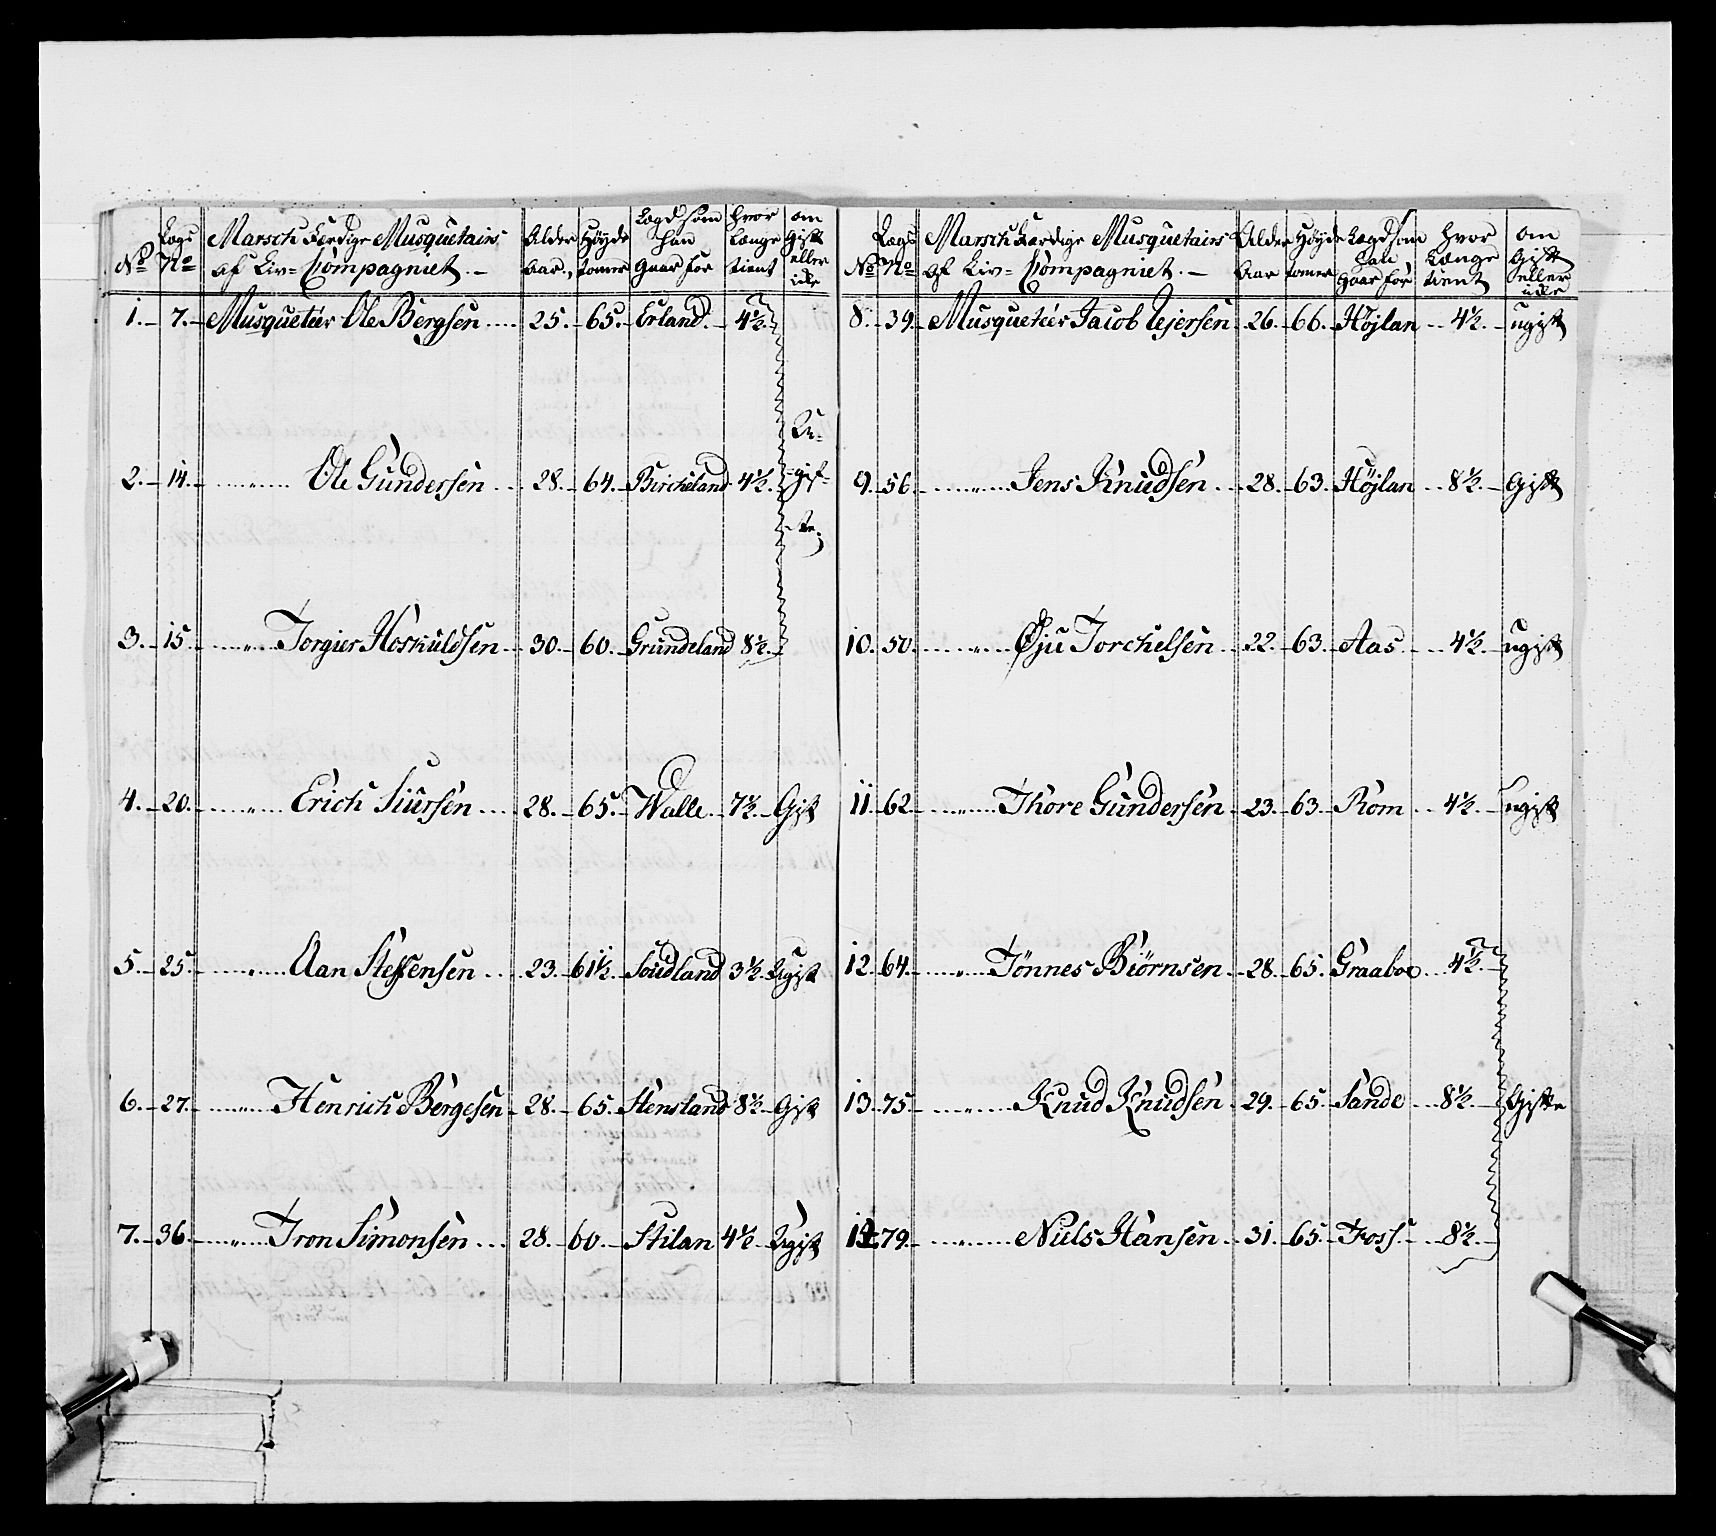 No Lægs No Marsch Færdige Musquetairs af Liv=Compagniet.- Alder Aar. Høyde tomer Lægd som han Gaar for hvor Længe tient om Gift eller ikke
1. 7. Musqueteer Ole Bergsen 25. 65. Erland. 4½.
2. 14. " Ole Gundersen 28. 64. Bircheland 4½. Ugifte.
3. 15. " Torgier Hoskuldsen 30. 60. Grundeland 8½.
4. 20. " Erich Siursen 28. 65. Walle 7½. Gift
5. 25. " Aan Steffensen 23. 61½. Soudland 3½. Ugift
6. 27. " Henrich Bergesen 28. 65. Stensland 8½. Gift
7. 36. " Tron Simonsen 28. 60. Stilan 4½ Ugift
No Lægs No Marsch Færdige Musquetairs af Liv=Compagniet.- Alder Aar Høyde tomer Lægd som han gaar for hvor Længe tient om Gift eller ikke
8. 39. Musqueteer Jacob Tejersen 26. 66. Höjlan 4½. ugift
9. 56. " Jens Knudsen 28. 63. Höjlan 8½. Gift
10. 50. " Øju Torchelsen 22. 63. Aas 4½. ugift
11. 62. " Thore Gundersen 23. 63. Rom 4½. ugift
12. 64. " Tönnes Biörnsen 28. 65. Graaboe 4½.
13. 75. " Knud Knudsen 29. 65. Sande 8½. Gifte
14. 79. " Niels Hansen 31. 65. Foss 8½.